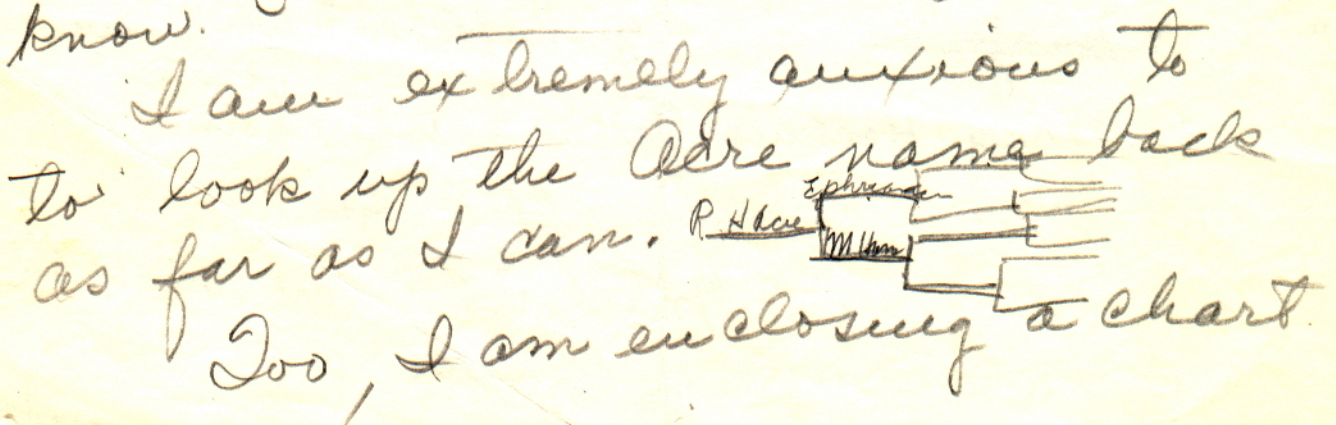 know.
I am extremely anxious to
to look up the Acre name back
Ephriam
as far as I can. R. H Acre
Too, I am enclosing a chart